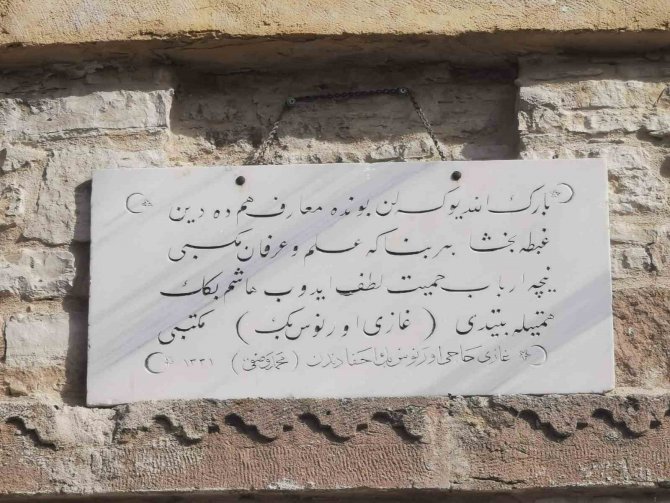 بارك الله یوكسلن بونده معارف هم ده دین
غبطه بخشا بر بنا كه علم و عرفان مكسبی
نیچه ارباب حمیت لطف ایدوب هاشم بكك
همتیله بیتدی (غازی اورنوس بك) مكتبی
غازی حاجی اورنوس بك احفادندن (محمد وصفی) ١٣٣١